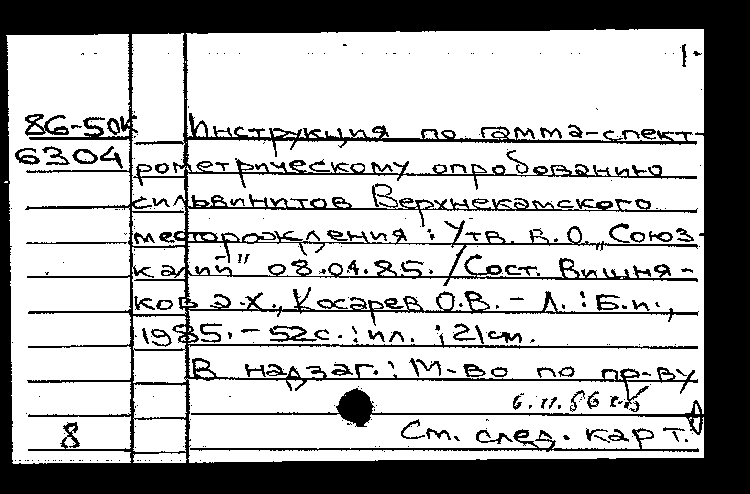 1.
86-50к Инструкция по гамма-спект-
6304 рометрическому опробованию
сильвинитов Верхнекамского
месторождения : Утв. В.О. „Союз-
калий" 08.04.85. / Сост. Вишня-
ков Э.Х., Косарев О.В. - Л. : Б.и.,
1985. - 52 с. : ил. ; 21 см.
В надзаг. : М-во по пр-ву
6.11.86
8 См. след. карт.